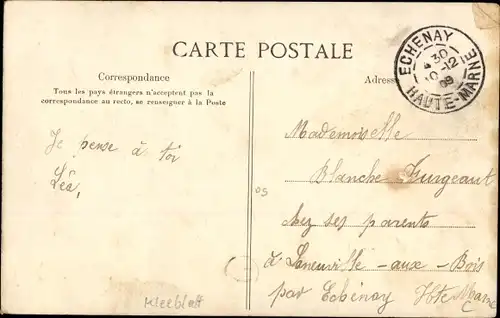 CARTE POSTALE
Correspondance
Tous les pays étrangers n'acceptent pas la
correspondance au recto, se renseigner à la Poste
Adresse
ECHENAY
30
10-12
09
HAUTE-MARNE
Je pense à toi
Léa,
Mademoiselle
Blanche Gurgeaut
chez ses parents
à Laneuville-aux-Bois
par Echénay Hte Marne
09
Kleeblatt